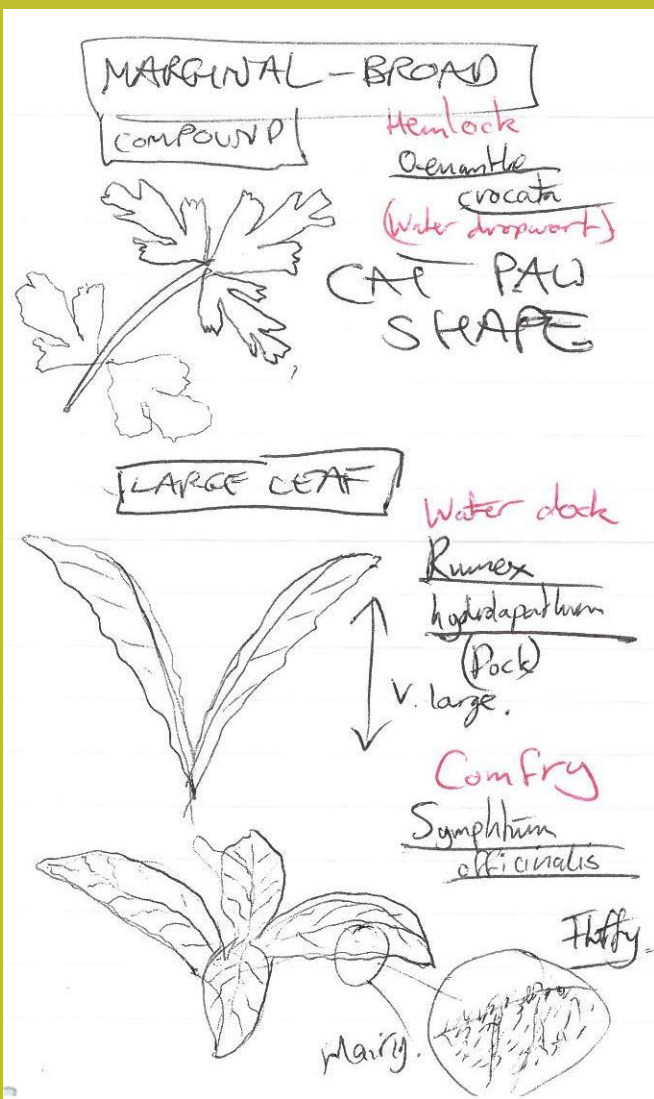 MARGINAL - BROAD
COMPOUND
Hemlock
Oenanthe
crocata
(Water dropwort)
CAT PAW
SHAPE
LARGE LEAF
Water dock
Rumex
hydrolapathum
(Dock)
V. large.
Comfry
Symphtum
officinalis
Fluffy
Hairy.